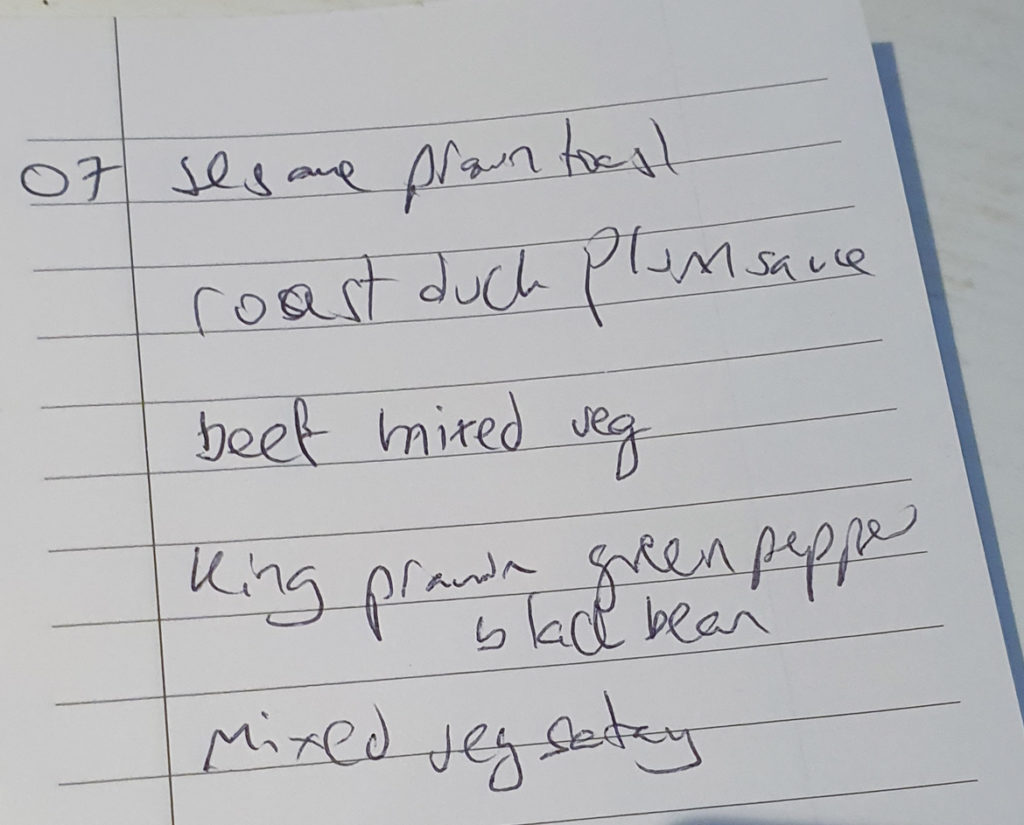 07 sesame prawn toast
roast duck plum sauce
beef mixed veg
King prawn green pepper
black bean
Mixed veg satay